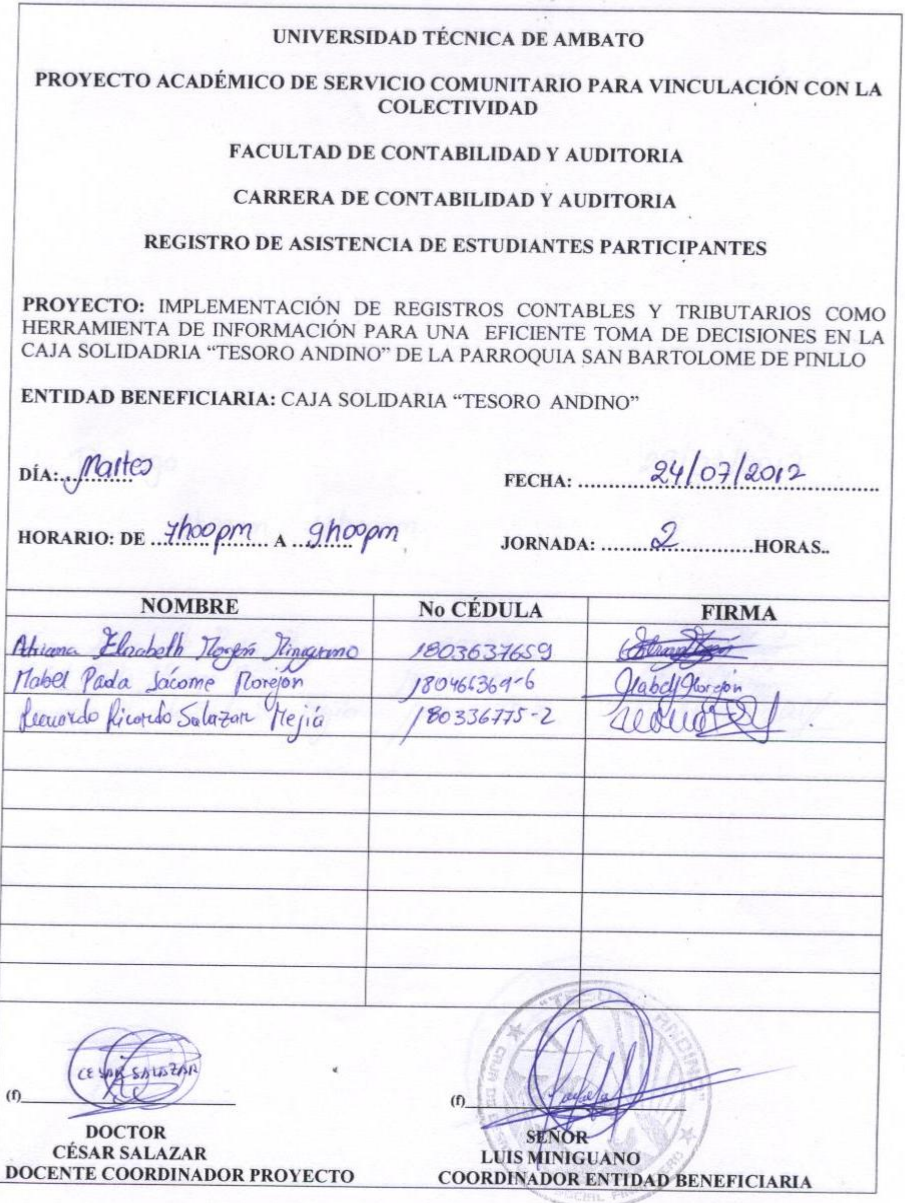 UNIVERSIDAD TÉCNICA DE AMBATO
PROYECTO ACADÉMICO DE SERVICIO COMUNITARIO PARA VINCULACIÓN CON LA
COLECTIVIDAD
FACULTAD DE CONTABILIDAD Y AUDITORIA
CARRERA DE CONTABILIDAD Y AUDITORIA
REGISTRO DE ASISTENCIA DE ESTUDIANTES PARTICIPANTES
PROYECTO: IMPLEMENTACIÓN DE REGISTROS CONTABLES Y TRIBUTARIOS COMO
HERRAMIENTA DE INFORMACIÓN PARA UNA EFICIENTE TOMA DE DECISIONES EN LA
CAJA SOLIDADRIA “TESORO ANDINO” DE LA PARROQUIA SAN BARTOLOME DE PINLLO
ENTIDAD BENEFICIARIA: CAJA SOLIDARIA “TESORO ANDINO”
DÍA: Martes FECHA: 24/07/2012
HORARIO: DE 7h00pm A 9h00pm JORNADA: 2 HORAS..
NOMBRE No CÉDULA FIRMA
Adriana Elizabeth 1803637659
Mabel Paola Jácome Morejón 180466369-6 Mabel Morejón
Leonardo Ricardo Salazar Mejía 180336775-2
CESAR SALAZAR
(f) (f)
DOCTOR
CÉSAR SALAZAR
DOCENTE COORDINADOR PROYECTO
SEÑOR
LUIS MINIGUANO
COORDINADOR ENTIDAD BENEFICIARIA